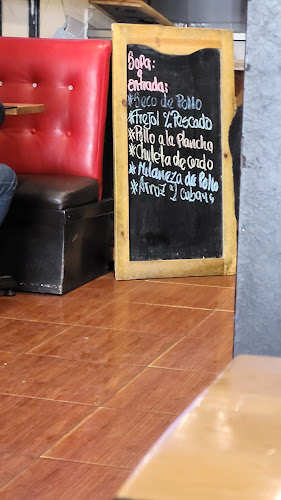 Sopa:
o
entrada:
*Seco de Pollo
*Frejol c/Pescado
*Pollo a la Plancha
*Chuleta de cerdo
*Milaneza de Pollo
*Arroz a